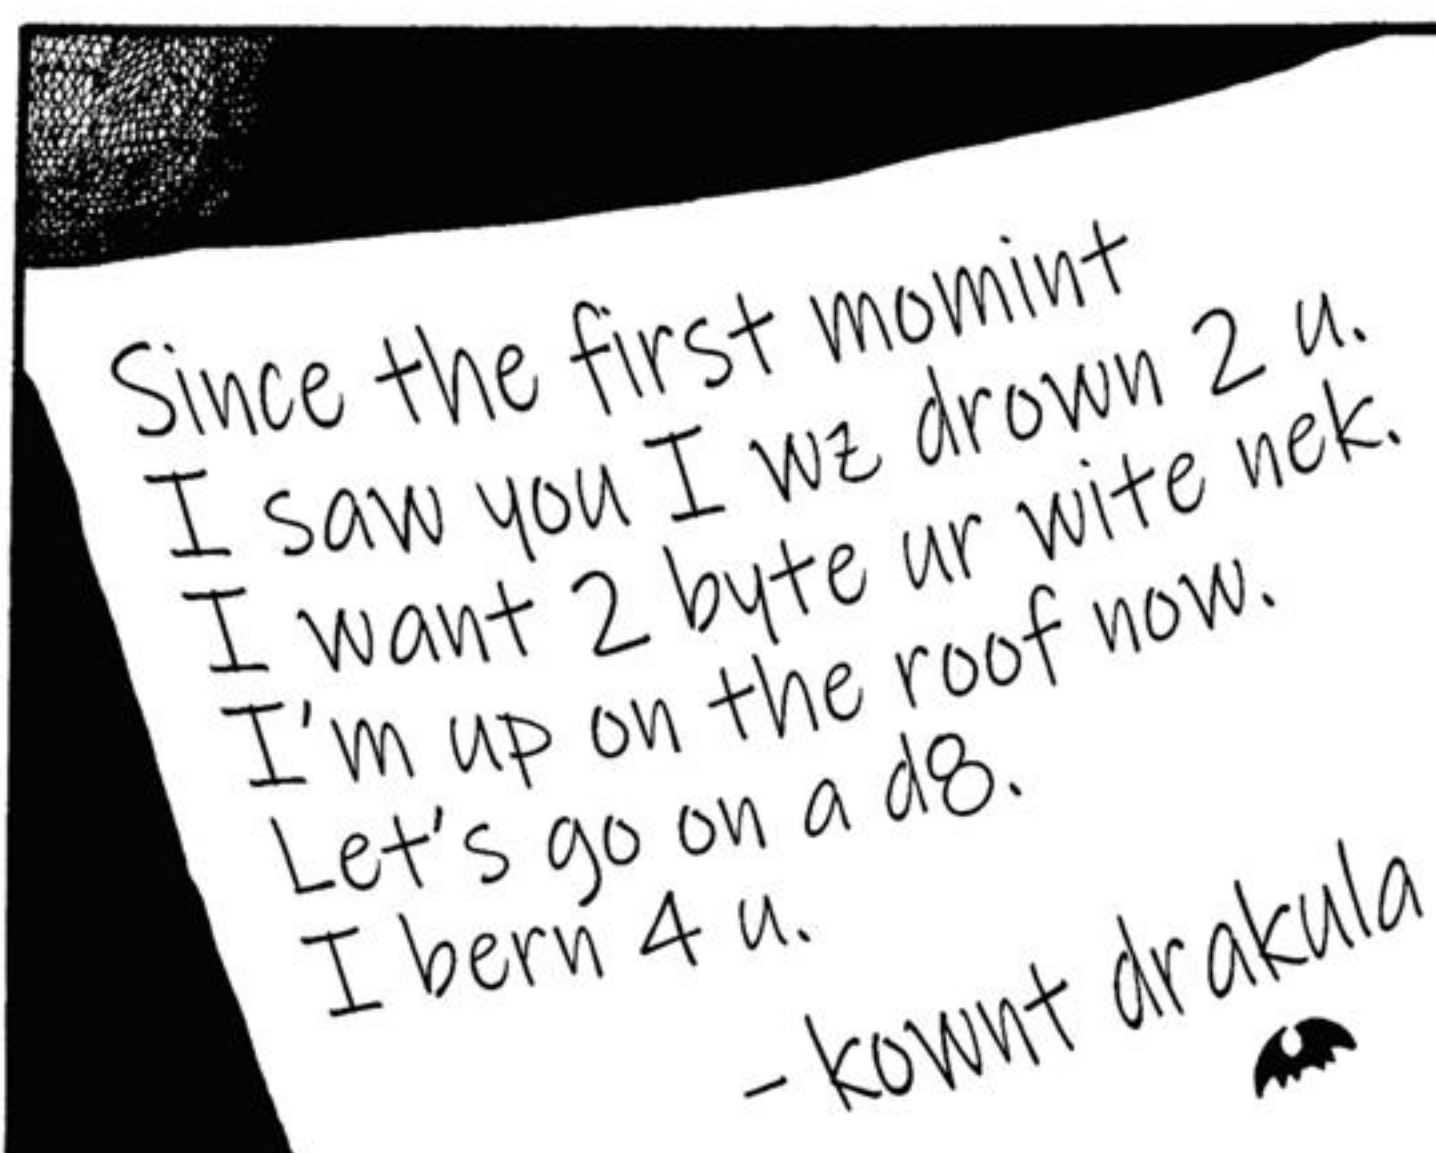 Since the first momint
I saw you I wz drown 2 u.
I want 2 byte ur wite nek.
I'm up on the roof now.
Let's go on a d8.
I bern 4 u.
- kownt drakula